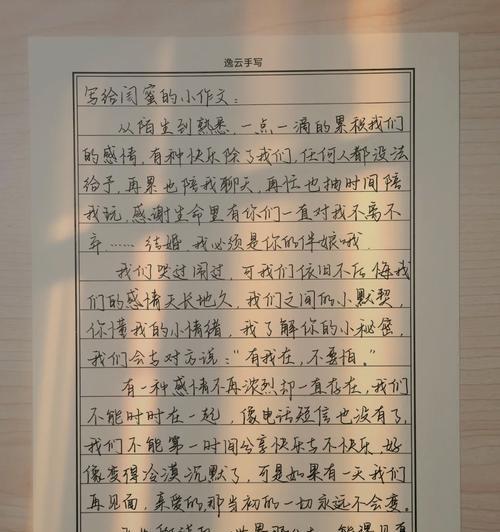 逸云手写
写给闺蜜的小作文:
从陌生到熟悉,一点一滴的累积我们
的感情,有种快乐除了我们,任何人都没法
给予,再累也陪我聊天,再忙也抽时间陪
我玩,感谢生命里有你们一直对我不离不
弃……结婚,我必须是你的伴娘哦.
我们哭过闹过,可我们依旧不后悔我
们的感情天长地久,我们之间的小默契,
你懂我的小情绪,我了解你的小秘密,
我们会与对方说:"有我在,不要怕。"
有一种感情不再浓烈却一直存在,我们
不能时时在一起,像电话短信也没有了,
我们不能第一时间分享快乐与不快乐,好
像变得冷漠沉默了,可是如果有一天我们
再见面,亲爱的,那当初的一切永远不会变。